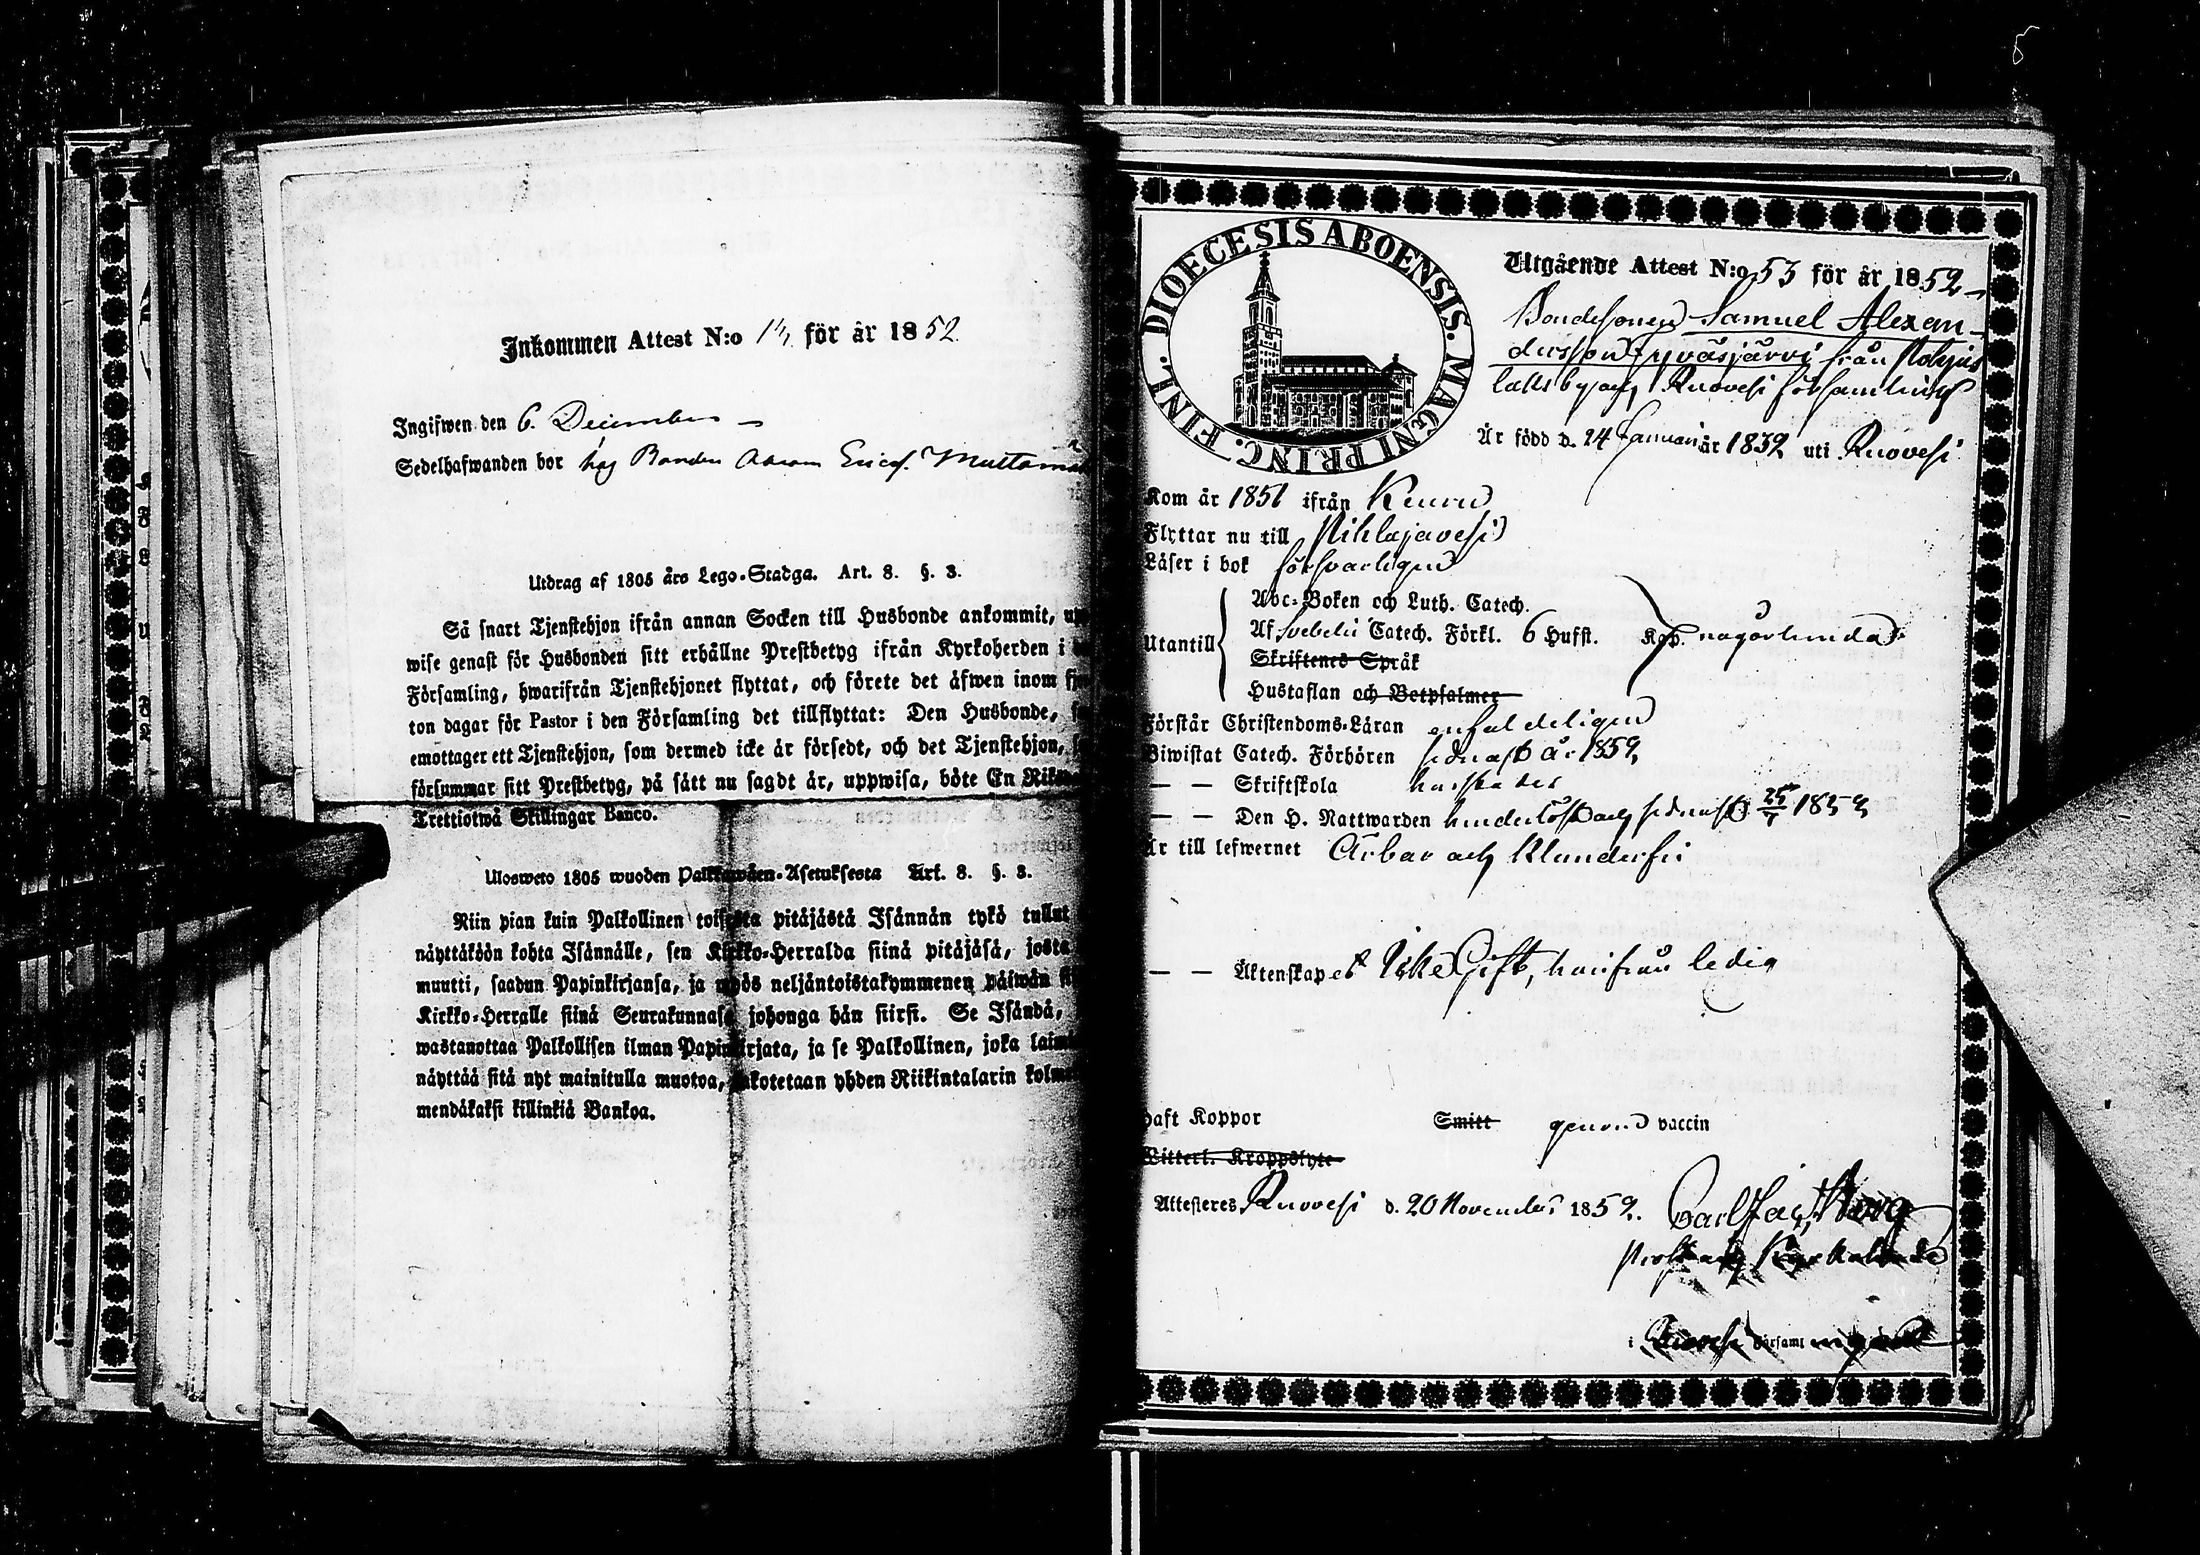 Inkommen Attest N:o 14 för år 1852.
Ingifwen den 6. December
Sedelhafwanden bor hos Bonden Abram Erics.
Utdrag af 1805 års Lego-Stadga. Art. 8. §. 3.
Så snart Tjenstehjon ifrån annan Socken till Husbonde ankommit,
wise genast för Husbonden sitt erhållne Prestbetyg ifrån Kyrkoherden i
Församling, hwarifrån Tjenstehjonet flyttat, och förete det äfwen inom
ton dagar för Pastor i den Församling det tillflyttat: Den Husbonde,
emottager ett Tjenstehjon, som dermed icke är försedt, och det Tjenstehjon,
försummar sitt Prestbetyg, på sätt nu sagdt är, uppwisa, böte En
Trettiotwå Skillingar Banco.
Ulosweto 1805 wuoden Palkkawäen-Asetuksesta Art. 8. §. 3.
Niin pian kuin Palkollinen toisesta pitäjästä Isännän tykö tullut
näyttäköön kohta Isännälle, sen Kirkko-Herralda siinä pitäjäsä, josta
muutti, saadun Papinkirjansa, ja myös neljäntoistakymmenen päiwän
Kirkko-Herralle siinä Seurakunnasa johonga hän siirsi. Se Isändä,
wastanottaa Palkollisen ilman Papinkirjata, ja se Palkollinen, joka
näyttää sitä nyt mainitulla muotoa, sakotetaan yhden Riikintalarin
mendäkaksi killinkiä Bankoa.
DIOECESIS ABOENSIS. MAGNI PRINC. FINL.
Utgående Attest N:o 53 för år 1852
Bondesonen Samuel Alexan-
dersson Hyväsjärvi från
by och Ruovesi församling
Är född d. 24 Januari år 1832 uti Ruovesi
Kom år 1851 ifrån Keuru
Flyttar nu till Pihlajavesi
Läser i bok försvarligen
Utantill
Abc-Boken och Luth. Catech.
Af Svebelii Catech. Förkl. 6 Hufst.
Skriftenes Språk
Hustaflan och Botpsalmer
Kap. någorlunda
Förstår Christendoms-Läran enfaldeligen
Biwistat Catech. Förhören sednast år 1852
— — Skriftskola
— — Den H. Nattwarden hinderlöst och sednast 25/7 1852
Är till lefwernet Ärbar och Klanderfri
— — Äktenskapet Icke Gift, härifrån ledig
haft Koppor Smitt genom vaccin
Witterl. Kroppslyte
Attesteres Ruovesi d. 20 November 1852.
Prost och Kyrkoherde
i Ruovesi församl